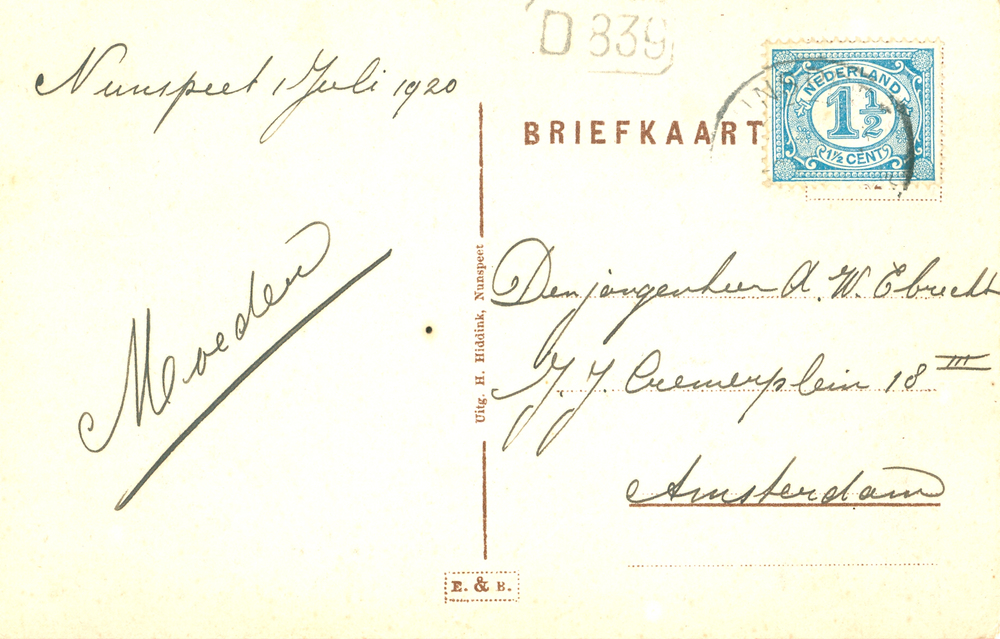 D 839
Nunspeet 1 Juli 1920
Moeder
BRIEFKAART
NEDERLAND
1 1/2
1½ CENT
Den jongenheer A. W. Ebrecht
J. J. Cremerplein 18 III
Amsterdam
Uitg. H. Hiddink, Nunspeet
E. & B.